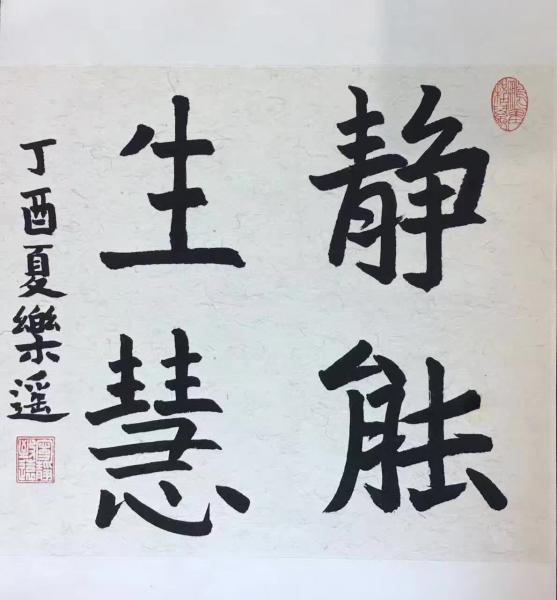 静能
生慧
丁酉夏樂遥